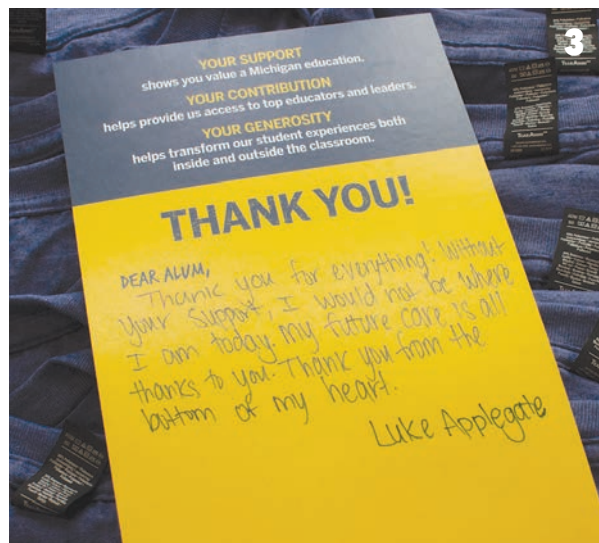 3
YOUR SUPPORT
shows you value a Michigan education.
YOUR CONTRIBUTION
helps provide us access to top educators and leaders.
YOUR GENEROSITY
helps transform our student experiences both
inside and outside the classroom.
THANK YOU!
DEAR ALUM,
Thank you for everything! Without
your support, I would not be where
I am today. my future care is all
thanks to you. Thank you from the
bottom of my heart.
Luke Applegate